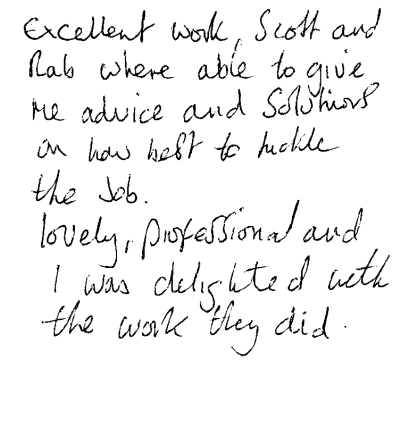 Excellent work, Scott and
Rab where able to give
me advice and Solutions
on how best to tackle
the Job.
lovely, professional and
I was delighted with
the work they did.